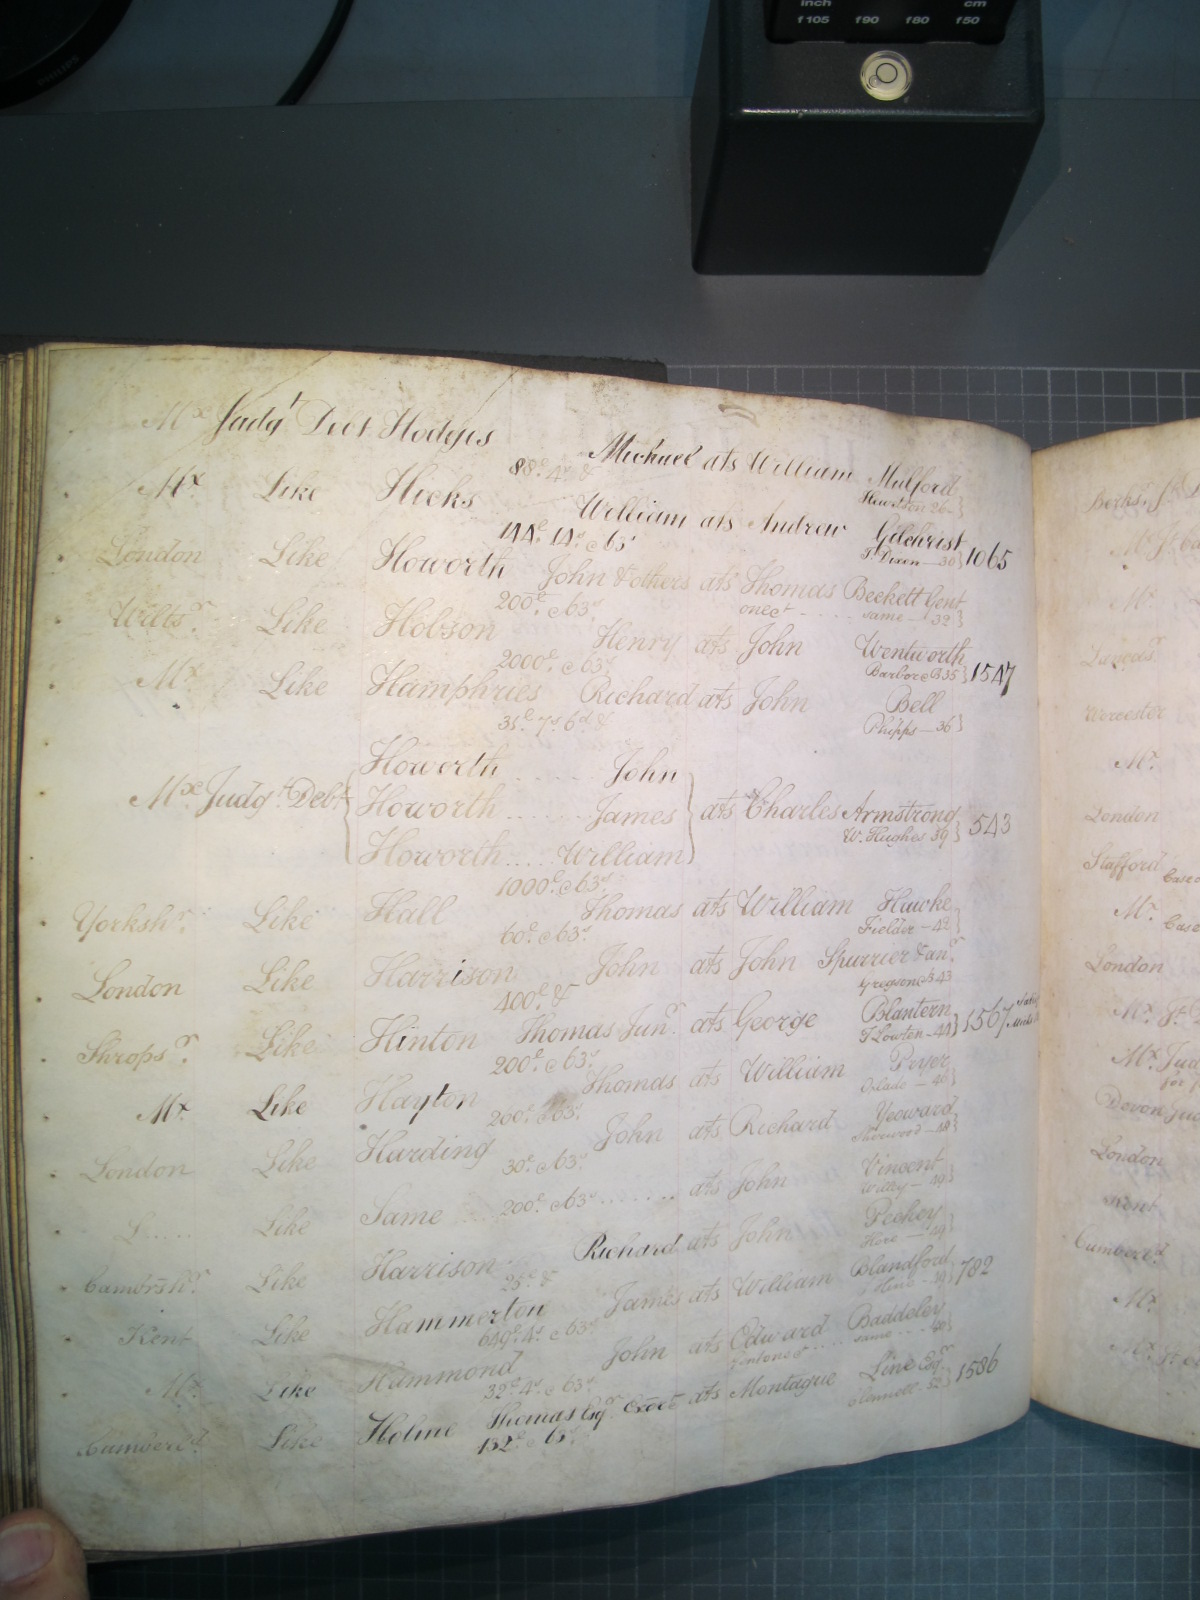 PHILIPS
inch cm
f105 f90 f80 f50
Mx Judgt Debt Hodges Michael ats William Mulford
88£. 4s. &
Hewitson 26
Mx Like Hicks William ats Andrew Gilchrist
144£. 14s. c 63s
T. Dixon — 30 } 1065
London Like Howorth John & others ats Thomas Beckett Gent
200£. c 63s
onect same — 32 }
Wiltsr. Like Hobson Henry ats John Wentworth
2000£. c 63s
Barbor c B 35 } 1547
Mx Like Hamphries Richard ats John Bell
31£. 7s. 6d. &
Phipps — 36 }
Howorth ..... John
Mx Judgt. Debt { Howorth ..... James } ats Charles Armstrong
W. Hughes 39 } 543
Howorth ..... William
1000£. c 63s
Yorkshr. Like Hall Thomas ats William Hawke
60£. c 63s
Fielder — 42 }
London Like Harrison John ats John Spurrier & anr
400£. &
Gregson c 43
Shropsr. Like Hinton Thomas Junr. ats George Blantern
200£. c 63s
T. Lowten — 44 } 1567
Mx Like Hayton Thomas ats William Pryer
200£. c 63s
Slade — 46 }
London Like Harding John ats Richard Yeoward
30£. c 63s
Sherwood — 48 }
L..... Like Same ..... ats John Vincent
200£. c 63s .......
Willey — 49 }
Cambrshr. Like Harrison Richard ats John Pechey
25£. &
Hore — 49 }
Kent Like Hammerton James ats William Blandford
649£. 4s. c 63s
} 782
Mx Like Hammond John ats Edward Baddeley
32£. 4s. c 63s
same
Cumberld. Like Holme Thomas Esqr. ats Montague Line Esqr.
132£. c 63s
1586
Berksr.
Mx
Mx
Worcester
Mx
London
Stafford
Mx
London
Mx
Mx Jud
Devon Jud
London
Kent
Cumberld.
Mx
Mx